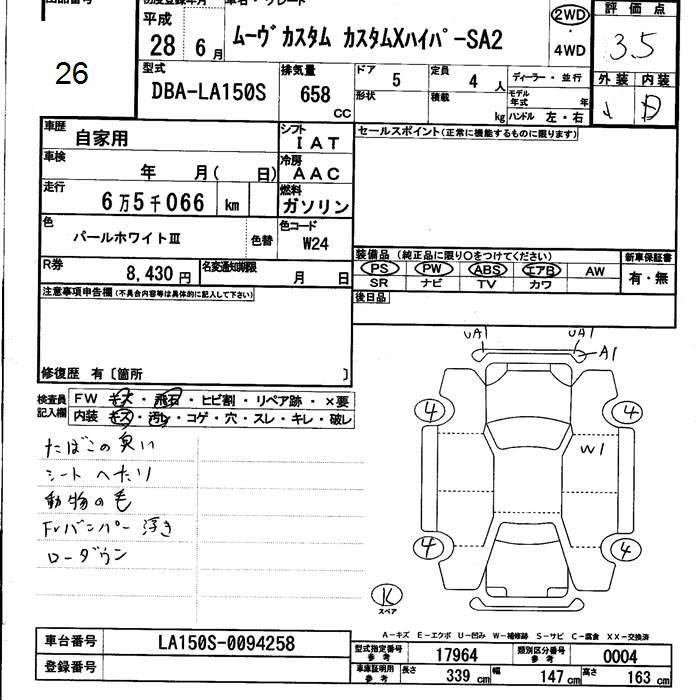 26
平成 28 年 6 月
ムーヴ カスタム カスタムXハイパーSA2
2WD ・ 4WD
評 価 点
3.5
外 装 内 装
D
型式 DBA-LA150S
排気量 658 CC
ドア 5
定員 4 人
形状
積載 kg
ディーラー・並行
モデル年式 年
ハンドル 左・右
車歴 自家用
シフト IAT
車検 年 月( 日)
冷房 AAC
走行 6万5千066 km
燃料 ガソリン
色 パールホワイトⅢ
色替
色コード W24
R券 8,430 円
名変通知期限 月 日
セールスポイント(正常に機能するものに限ります)
装備品 (純正品に限り○をつけてください)
新車保証書
PS PW ABS エアB AW
SR ナビ TV カワ
有・無
後日品
注意事項申告欄(不具合内容等は具体的に記入して下さい)
修復歴 有〔箇所 〕
検査員記入欄
FW キズ・飛石・ヒビ割・リペア跡・×要
内装 キズ・汚レ・コゲ・穴・スレ・キレ・破レ
たばこの臭い
シート へたり
動物の毛
Frバンパー浮き
ローダウン
UA1 UA1
A1
4 4
W1
4 4
K
スペア
A-キズ E-エクボ U-凹み W-補修跡 S-サビ C-腐食 XX-交換済
車台番号 LA150S-0094258
登録番号
型式指定番号 参考 17964
類別区分番号 参考 0004
車庫証明用 参考 長さ 339 cm 幅 147 cm 高さ 163 cm